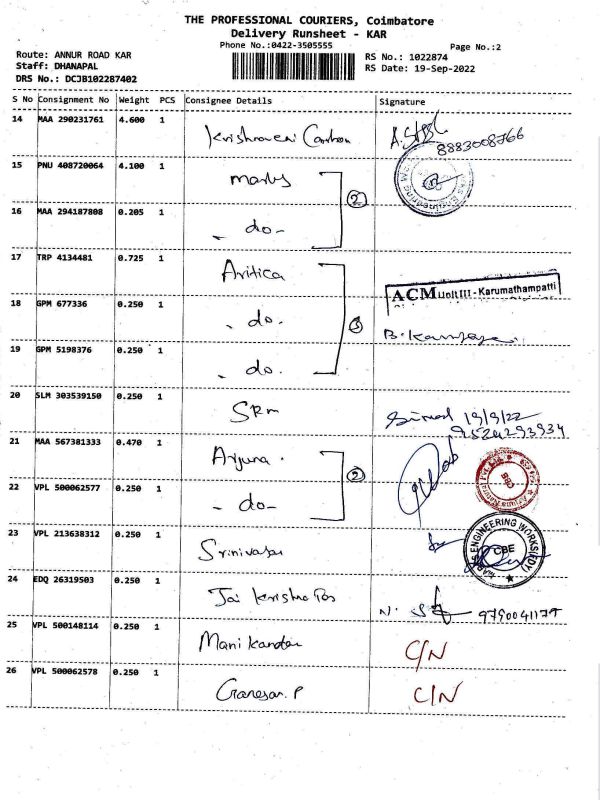 THE PROFESSIONAL COURIERS, Coimbatore
Delivery Runsheet - KAR
Phone No.:0422-3505555
Page No.:2
Route: ANNUR ROAD KAR
RS No.: 1022874
Staff: DHANAPAL
RS Date: 19-Sep-2022
DRS No.: DCJB102287402
S No Consignment No Weight PCS Consignee Details Signature
14 MAA 290231761 4.600 1 Krishnaveni Carbon 8883008766
15 PNU 408720064 4.100 1 marks
2
16 MAA 294187808 0.205 1 - do -
17 TRP 4134481 0.725 1 Aritica
ACM Unit III - Karumathampatti
18 GPM 677336 0.250 1 - do.
3
19 GPM 5198376 0.250 1 - do.
20 SLM 303539150 0.250 1 SRm 19/9/22
9524293934
21 MAA 567381333 0.470 1 Arjuna.
2
22 VPL 500062577 0.250 1 - do -
23 VPL 213638312 0.250 1 Srinivasan
ENGINEERING WORKS
CBE
24 EDQ 26319503 0.250 1 Jai Krishna 9790041177
25 VPL 500148114 0.250 1 Manikandan C/N
26 VPL 500062578 0.250 1 Ganesan. P C/N